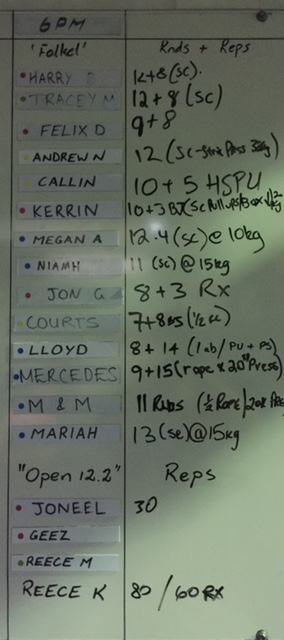 6PM
'Folkel' Rnds + Reps
HARRY B 12+8 (SC).
TRACEY M 12+8 (SC)
FELIX D 9+8
ANDREW N 12 (SC-Strict Press
CALLIN 10+5 HSPU
KERRIN 10+3 BJ (SC Pull ups/Box
MEGAN A 12.4 (SC)@ 10kg
NIAMH 11 (SC) @ 15kg
JON G 8+3 Rx
COURTS 7+8
LLOYD 8+14 (1ab/PU + PS)
MERCEDES 9+15 (rope x 20 Press)
M & M 11 Rnds (½ Rope/20k
MARIAH 13 (SC)@15kg
"Open 12.2" Reps
JONEEL 30
GEEZ
REECE M
REECE K 80 / 60 RX